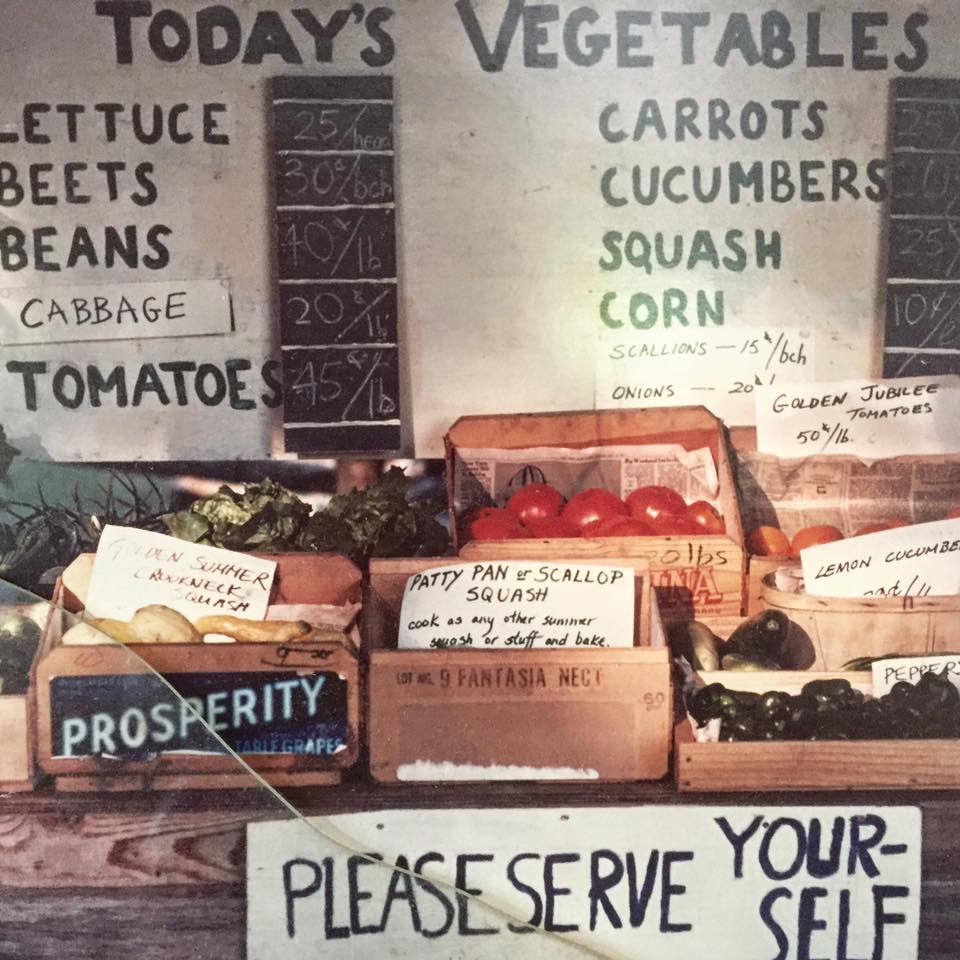 TODAY'S VEGETABLES
LETTUCE 25/head
BEETS 30¢/bch
BEANS 40¢/lb
CABBAGE 20¢/lb
TOMATOES 45¢/lb
CARROTS 25
CUCUMBERS
SQUASH 25¢
CORN 10¢/
SCALLIONS — 15¢/bch
ONIONS — 20¢/
GOLDEN JUBILEE
TOMATOES
50¢/lb.
GOLDEN SUMMER
CROOKNECK
SQUASH
PATTY PAN or SCALLOP
SQUASH
cook as any other summer
squash or stuff and bake.
20 lbs
LEMON CUCUMBE
PEPPERS
PROSPERITY
TABLE GRAPES
LOT NO. 9 FANTASIA NECT
60
PLEASE SERVE YOUR-
SELF